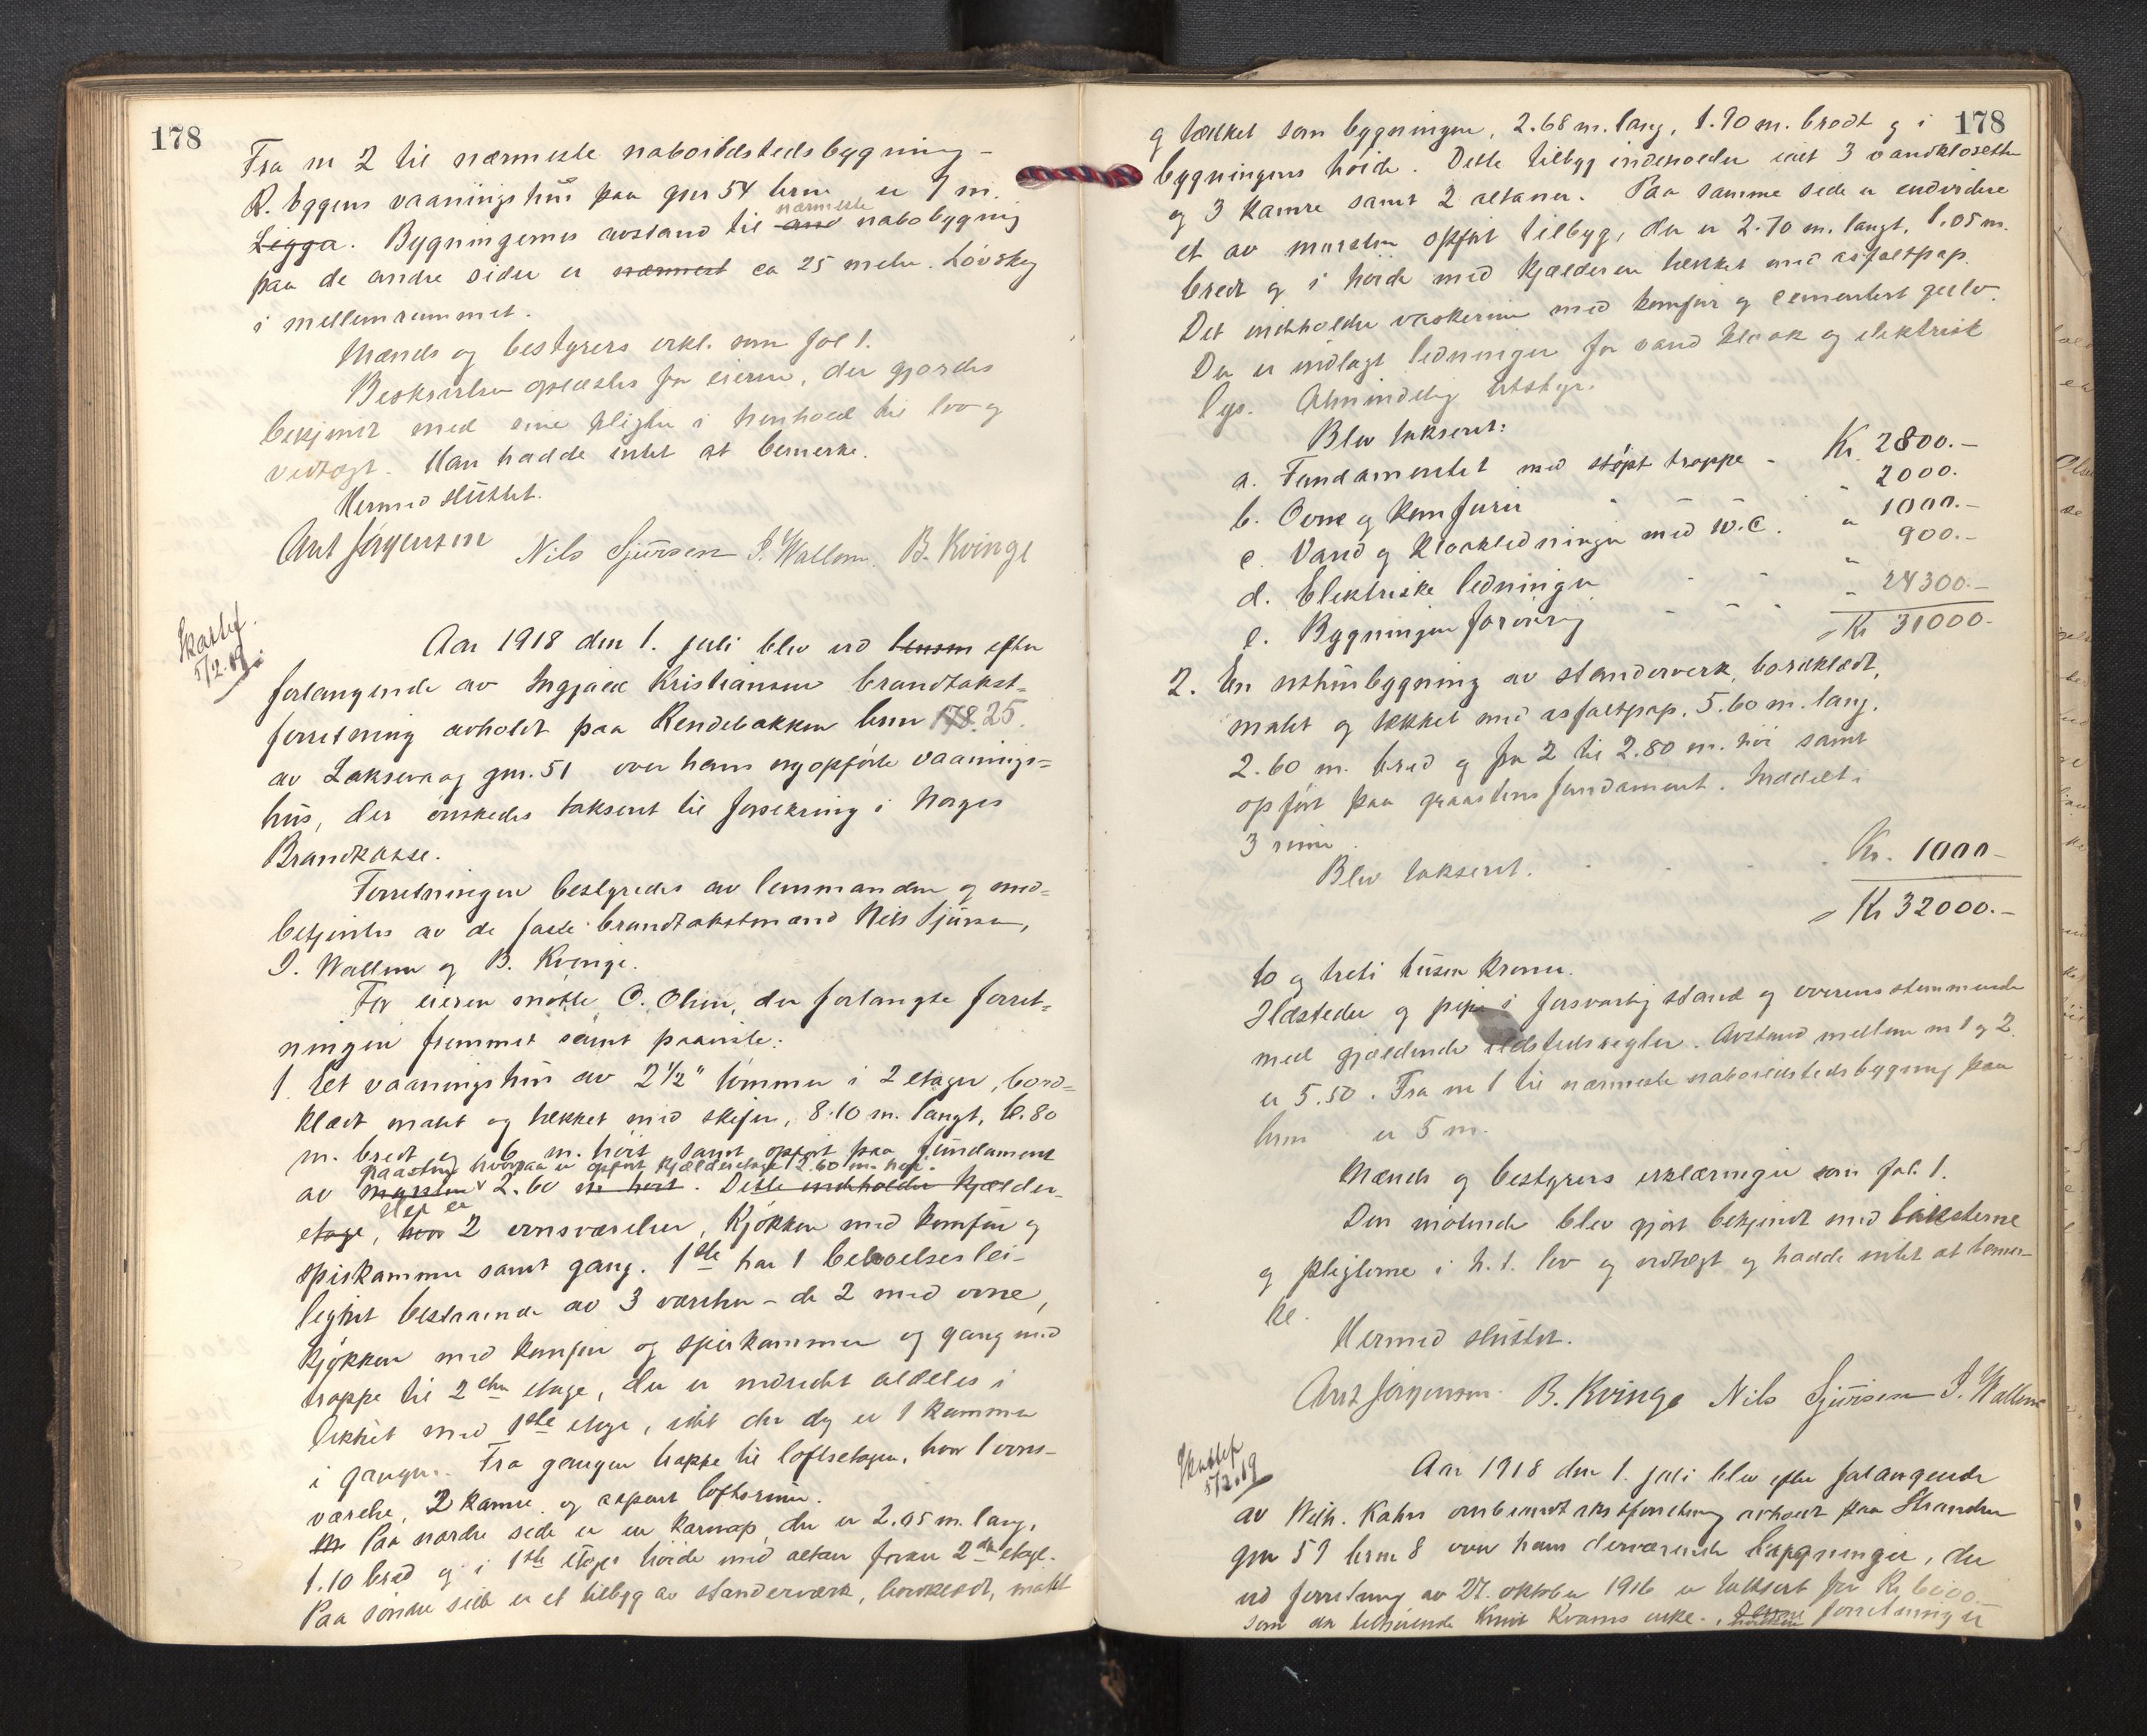 178
Fra nr 2 til nærmeste naboildstedsbygning -
R. Eggens vaaningshus paa gnr 54 brnr er 7 m.
Ligga. Bygningernes avstand til nærmeste nabobygning
paa de andre sider er nærmest ca 25 meter. Løvskog
i mellemrummet.
Mænds og bestyrers erkl. som fol 1.
Beskrivelsen oplæstes for eieren, der gjordes
bekjendt med sine pligter i henhold til lov og
vedtægt. Han hadde intet at bemerke.
Hermed sluttet.
Arnt Jørgensen Nils Sjursen I. Wallem. B. Kvinge
Skattef.
5/2.19
Aar 1918 den 1. juli blev ved lensm efter
forlangende av Ingjald Kristiansen brandtakst=
forretning avholdt paa Rendebakken brnr 178. 25.
av Laksevaag gnr. 51 over hans nyopførte vaanings=
hus, der ønskedes taksert til forsikring i Norges
Brandkasse.
Forretningen bestyredes av lensmanden og med=
betjentes av de faste brandtakstmænd Nils Sjursen,
I. Wallem og B. Kvinge.
For eieren møtte O. Olsen, der forlangte forret=
ningen fremmet samt paaviste:
1. Et vaaningshus av 2½" tømmer i 2 etager, bord=
klædt malet og tækket med skifer, 8.10 m. langt, 6.80
m. bredt og 6 m. høit samt opført paa fundament
graasten hvorpaa er opført kjælderetage 2.60 m. høi.
av mursten 2.60 m høit. Dette indeholder kjælder-
etage, der er hvor 2 ovnsværelser, kjøkken med komfur og
spiskammer samt gang. 1ste har 1 beboelseslei-
lighet bestaaende av 3 værelser - de 2 med ovne,
kjøkken med komfur og spiskammer og gang med
trappe til 2den etage, der er indredet aldeles i
likhet med 1ste etage, idet der dog er 1 kammer
i gangen. Fra gangen trappe til loftsetagen, hvor 1 ovns-
værelse, 2 kamre og aapent loftsrum.
En Paa nordre side er en karnap, der er 2.05 m. lang,
1.10 bred og i 1ste etages høide med altan foran 2den etage.
Paa søndre side er et tilbyg av standerværk, bordklædt, malt
178
og tækket som bygningen, 2.68 m. lang, 1.90 m. bredt og i
bygningens høide. Dette tilbyg indeholder ialt 3 vandklosetter
og 3 kamre samt 2 altaner. Paa samme side er endvidere
et av mursten opført tilbyg, der er 2.70 m. langt, 1.05 m.
bredt og i høide med kjælderen tækket med asfaltpap.
Det indeholder vaskerum med komfur og cementert gulv.
Der er indlagt ledninger for vand kloak og elektrisk
lys. Almindelig utstyr.
Blev taksert:
a. Fundamentet med støpt trappe - Kr. 2800.-
b. Ovne og komfurer " 2000.
c. Vand og kloakledninger med W.C. " 1000.-
d. Elektriske ledninger " 900.-
e. Bygningen forøvrig " 24300.-
= Kr 31000.-
2. En uthusbygning av standerverk, bordklædt,
malet og tækket med asfaltpap. 5.60 m. lang,
2.60 m. bred og fra 2 til 2.80 m. høi samt
opført paa graastens fundament. Inddelt i
3 rum.
Blev taksert. Kr. 1000.-
= Kr 32000.-
to og treti tusen kroner.
Ildsteder og pipe i forsvarlig stand og overensstemmende
med gjældende ildstedsregler. Avstand mellem nr 1 og 2
er 5.50. Fra nr 1 til nærmeste naboildstedsbygning paa
brnr er 5 m.
Mænds og bestyrers erklæringer som fol. 1.
Den møtende blev gjort bekjendt med taksterne
og pligterne i h. t. lov og vedtægt og hadde intet at bemer-
ke.
Hermed sluttet.
Arnt Jørgensen. B. Kvinge Nils Sjursen I. Wallem
Skattef
5/2.19
Aar 1918 den 1. juli blev efter forlangende
av Wilh. Kahrs ombrandtakstforretning avholdt paa Stranden
gnr 51 brnr 8 over hans derværende bygninger, der
ved forretning av 27. oktober 1916 er taksert for Kr. 6000.
som da tilhørende Kvams enke. forretning er